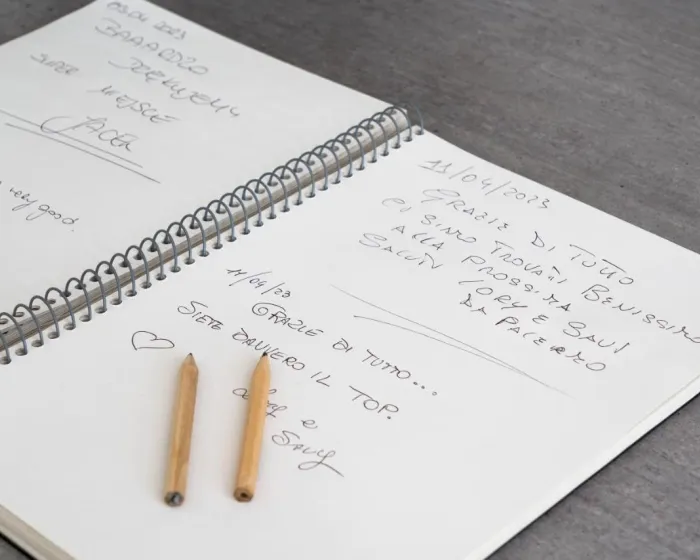 09.04.2023
BAAARDZO
DZIĘKUJEMY
SUPER MIEJSCE
JACEK
very good.
11/04/2023
GRAZIE DI TUTTO
CI SIMO TROVATI BENISSIMO
ALLA PROSSIMA
SALUTI LORY E SAVI
DA PALERMO
11/04/23
GRAZIE DI TUTTO...
SIETE DAVVERO IL TOP.
e
Savy